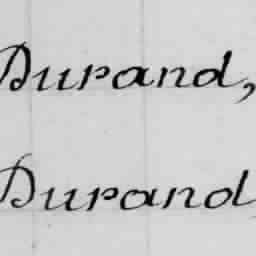 Durand,
Durand